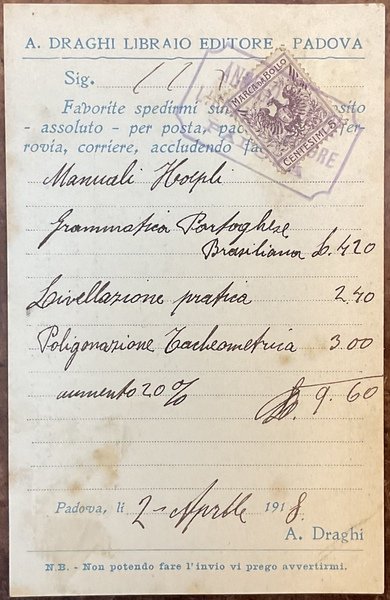 A. DRAGHI LIBRAIO EDITORE, PADOVA
Sig.
Favorite spedirmi
- assoluto - per posta,
rovia, corriere, accludendo
MARCA DA BOLLO
CENTESIMI 5
Manuali Hoepli
Grammatica Portoghese
Brasiliana L. 4.20
Livellazione pratica 2.40
Poligonazione Tacheometrica 3.00
aumento 20% L. 9.60
Padova, li 2 - Aprile 1918.
A. Draghi
N.B. - Non potendo fare l'invio vi prego avvertirmi.